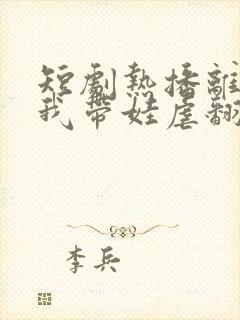 短劇熱播離
我帶娃虐翻
李兵